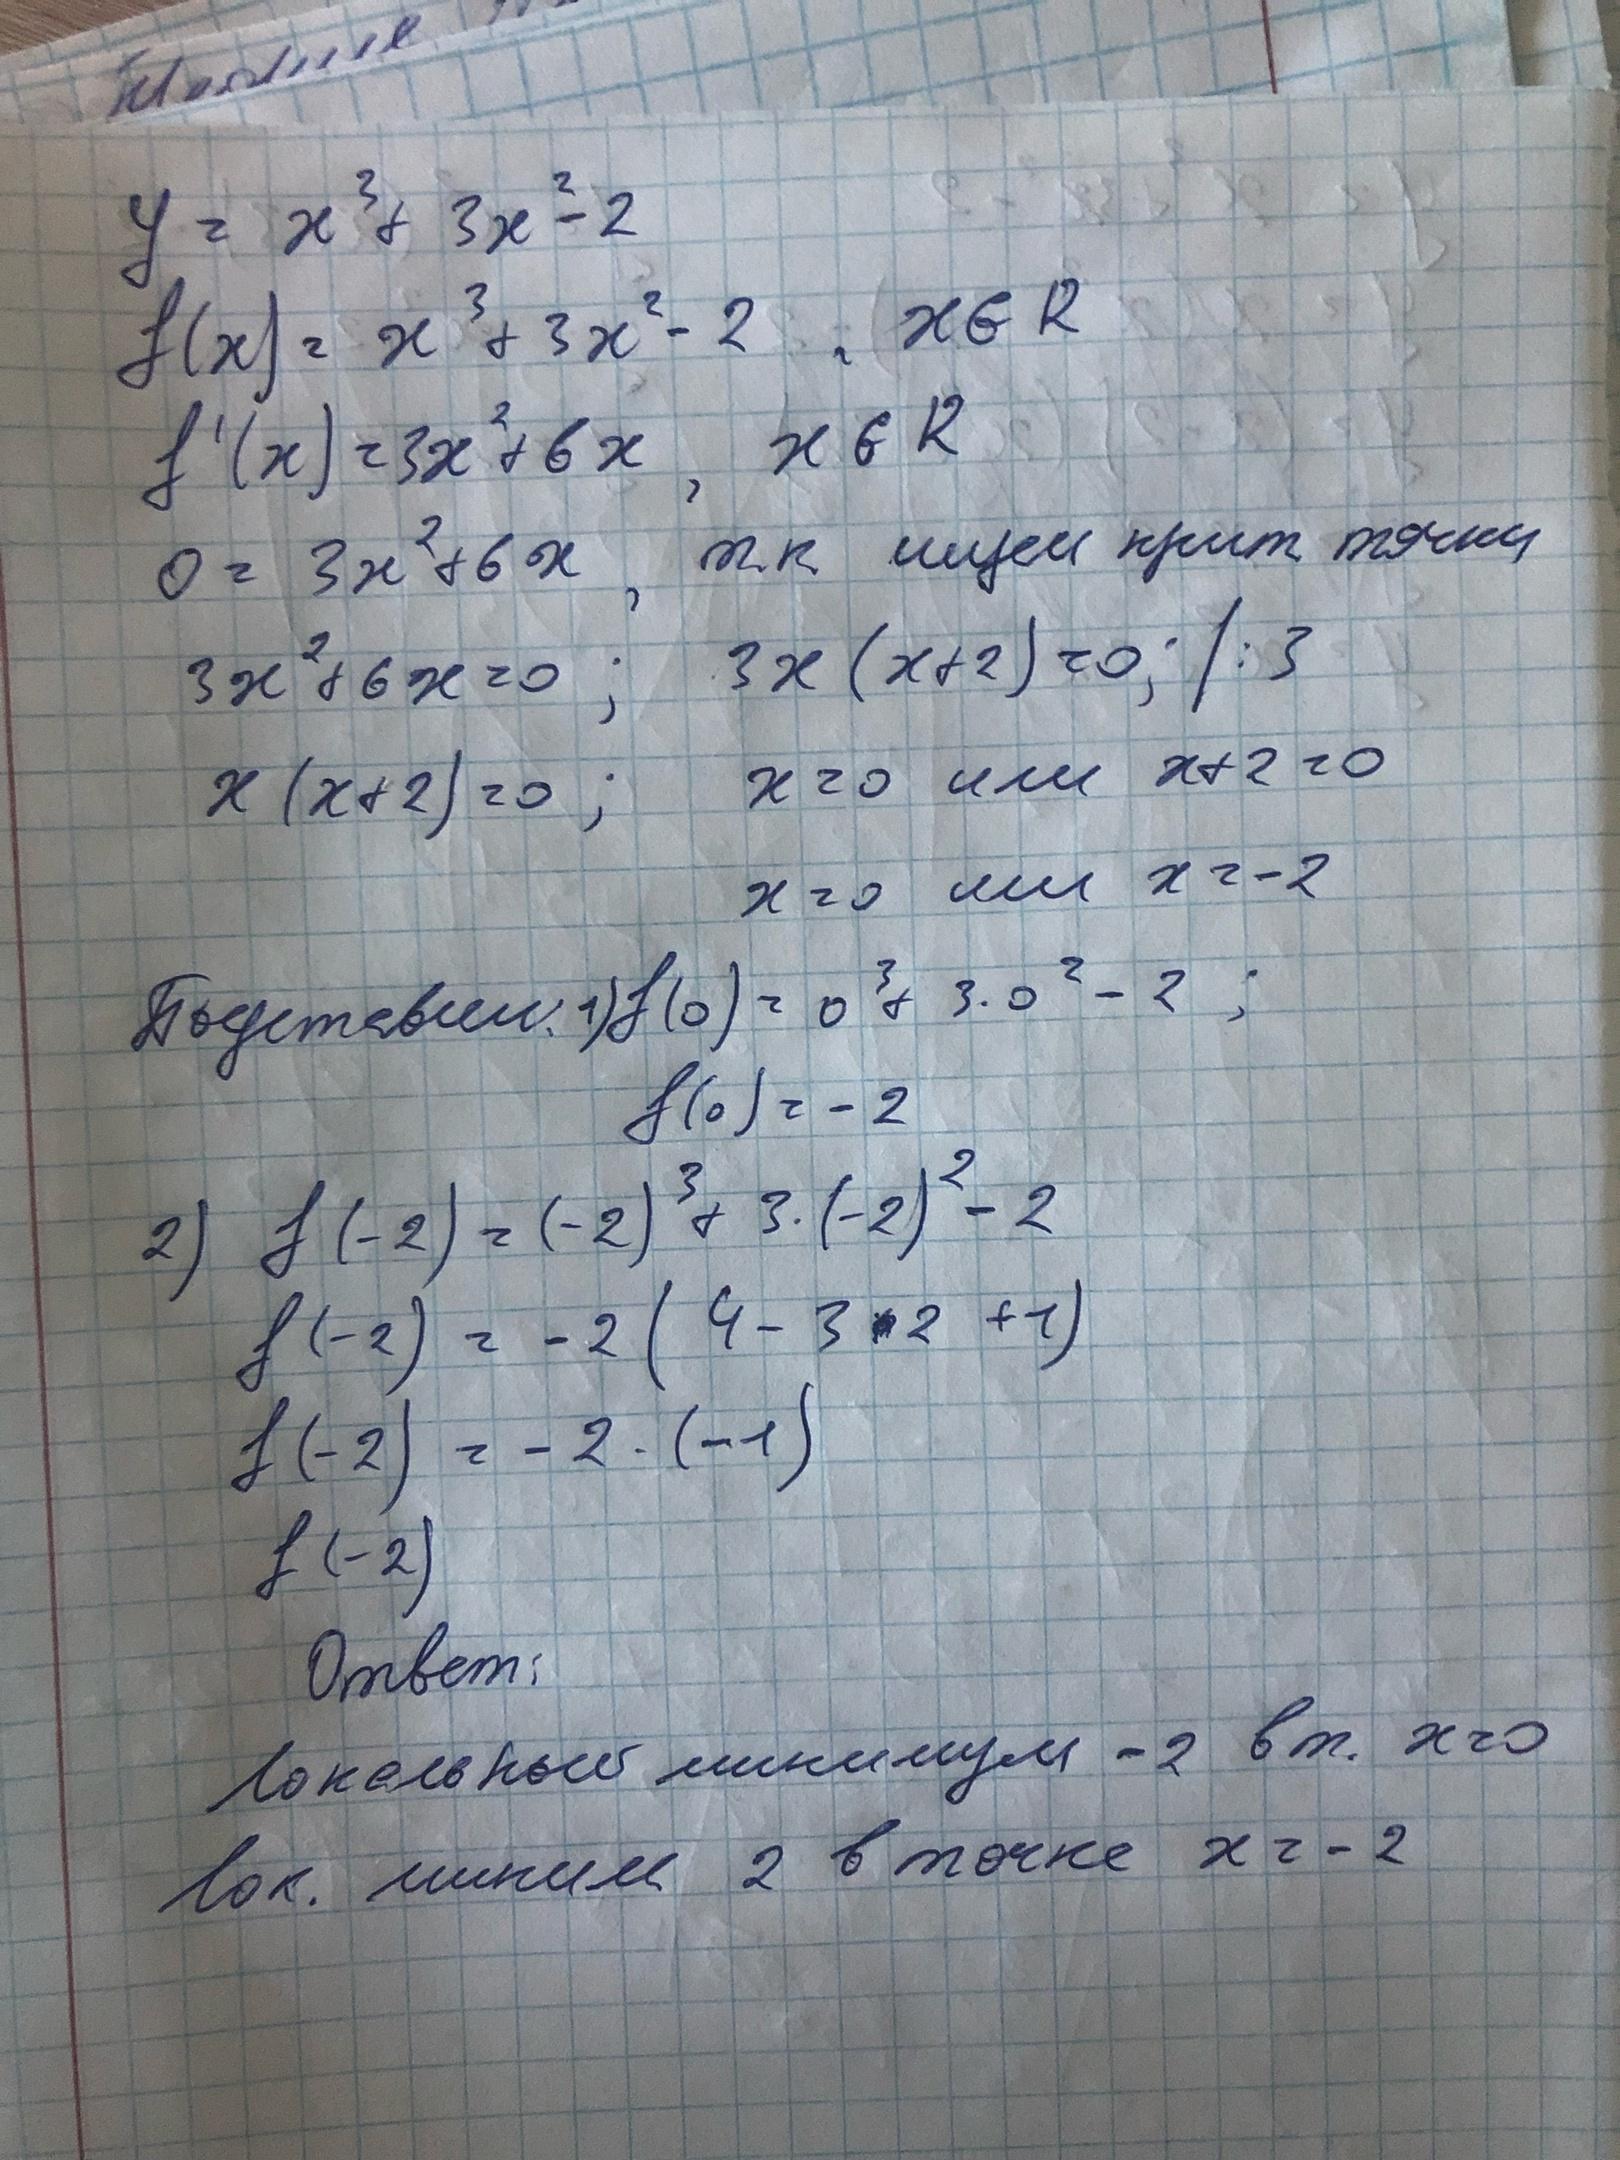 y = x³ + 3x² - 2
f(x) = x³ + 3x² - 2 , x ∈ R
f'(x) = 3x² + 6x , x ∈ R
0 = 3x² + 6x , т.к ищем крит точки
3x² + 6x = 0 ; 3x (x+2) = 0 ; / : 3
x (x+2) = 0 ; x = 0 или x+2 = 0
x = 0 или x = -2
Подставим: 1) f(0) = 0³ + 3·0² - 2 ;
f(0) = -2
2) f(-2) = (-2)³ + 3·(-2)² - 2
f(-2) = -2 ( 4 - 3·2 + 1)
f(-2) = -2 · (-1)
f(-2)
Ответ:
Локальный минимум -2 в т. x=0
Лок. миним 2 в точке x = -2